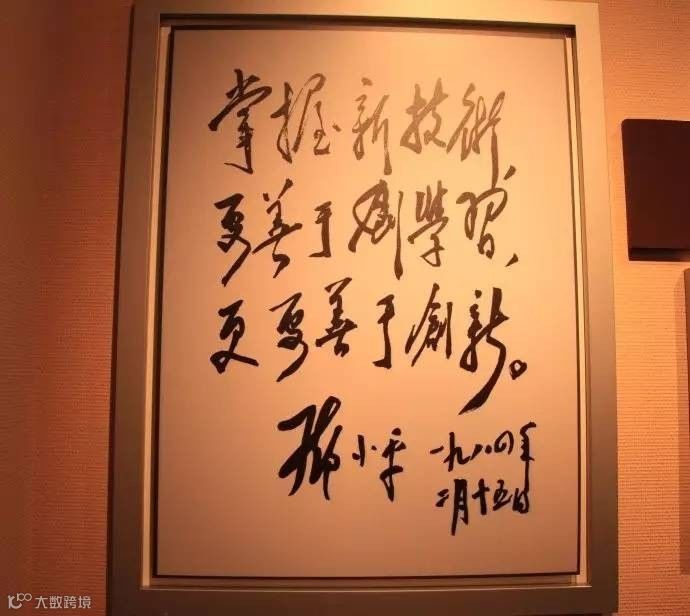 掌握新技術、
要善于學習、
更要善于創新。
邓小平 一九八四年
二月十五日
大数跨境